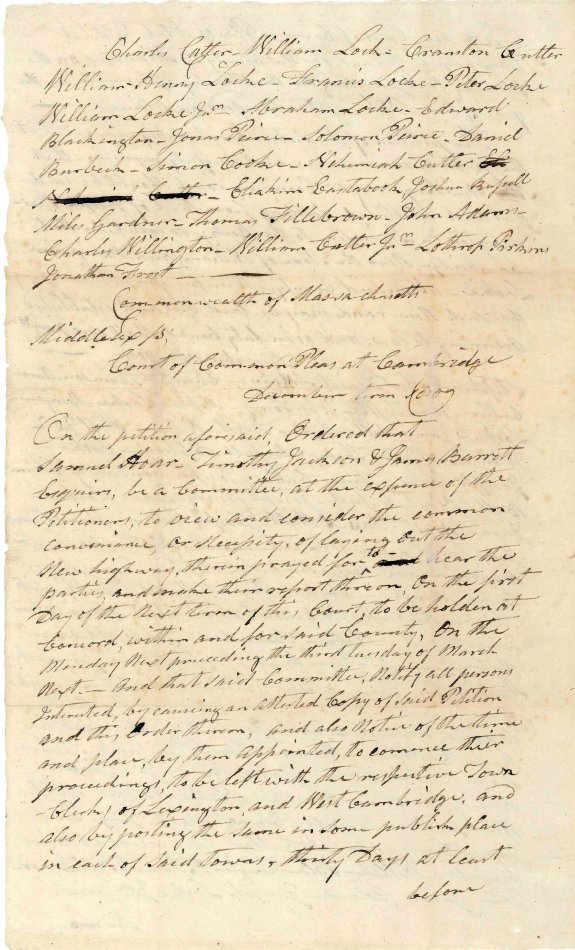 Charles Cutter - William Locke - Cranston Cutter
William Henry Locke - Francis Locke - Peter Locke
William Locke Junr - Abraham Locke - Edward
Blackington - Jonas Peirce - Solomon Peirce - Daniel
Burbeck - Simon Cooke - Nehemiah Cutter
Cutter - Eliakim Eastabook, Joshua Russell
Miles Gardner - Thomas Fillebrown - John Adams -
Charles Willington - William Cutter Junr - Lothrop Pirkins
Jonathan Frost -
Commonwealth of Massachusetts
Middlesex ss.
Court of Common Pleas at Cambridge
December term 1809
On the petition aforesaid, Ordered that
Samuel Hoar - Timothy Jackson & James Barrett
Esquires, be a Committee, at the expence of the
Petitioners, to view and consider the common
convenience, or Necessity, of laying out the
New highway, therein prayed for, to hear the
parties, and make their report thereon, On the first
Day of the Next term of this Court, to be holden at
Concord, within and for said County, On the
Monday Next preceeding the third tuesday of March
Next. - And that said Committee, Notify all persons
Interested, by causing an Attested Copy of said Petition
and this Order thereon, and also Notice of the time
and place, by them Appointed, to commence their
proceedings, to be left with the respective Town
-Clerks of Lexington and West Cambridge, and
also by posting the same in some publick place
in each of said Towns, thirty Days at least
before